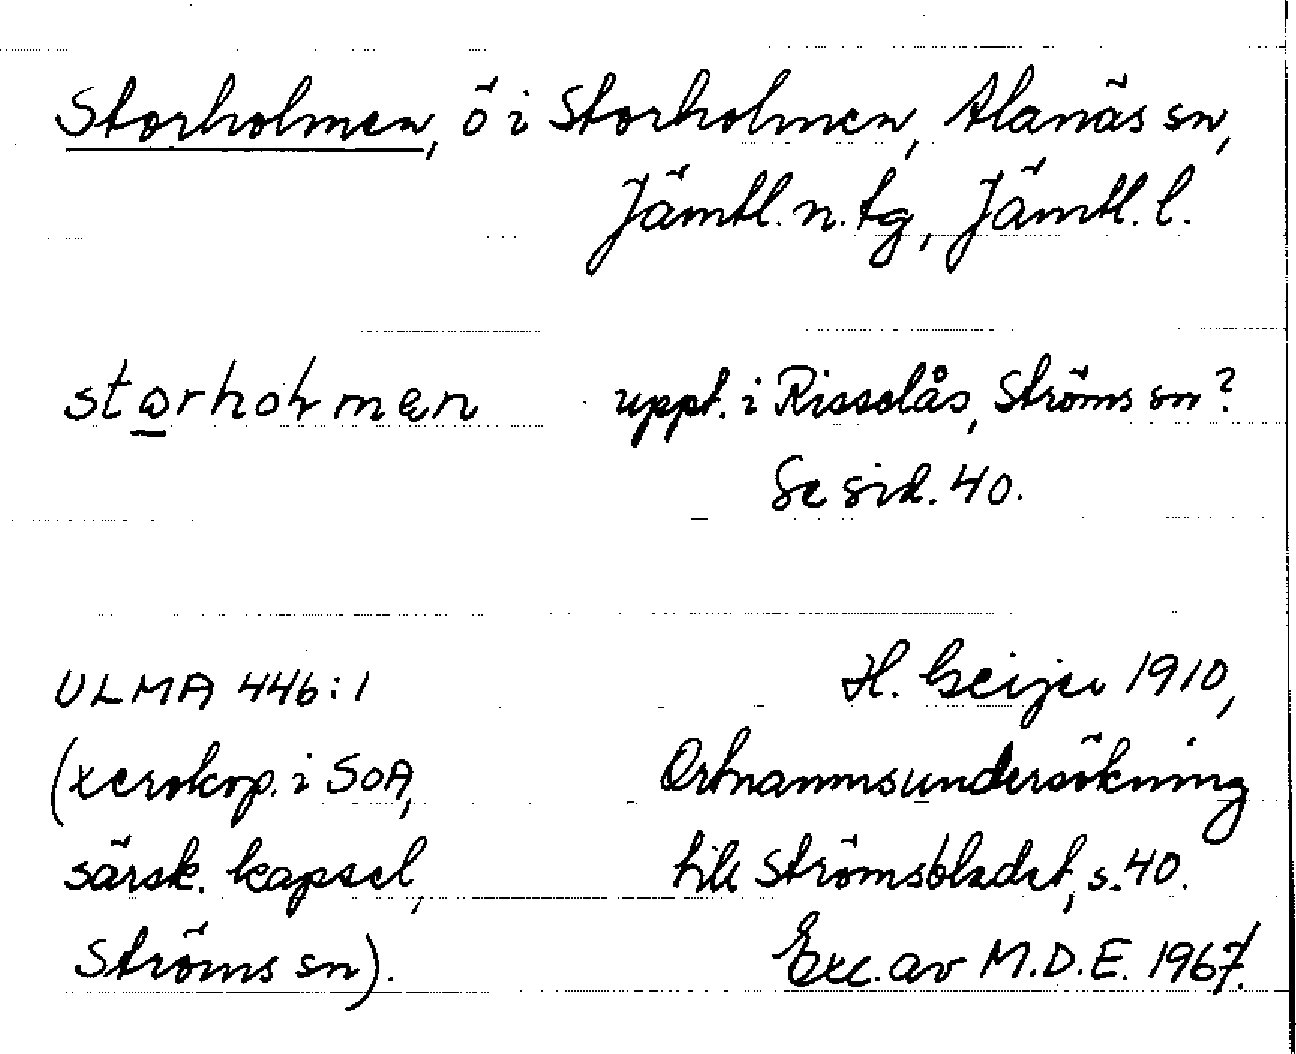 Storholmen, ö i Storholmen, Alanäs sn,
Jämtl. n. tg, Jämtl. l.
uppt. i Risselås, Ströms sn?
Se sid. 40.
ULMA 446:1
H. Geijer 1910,
(xerokop. i SOA,
Ortnamnsundersökning
särsk. kapsel,
till Strömsbladet, s. 40.
Ströms sn).
Exc. av M.D.E. 1967.